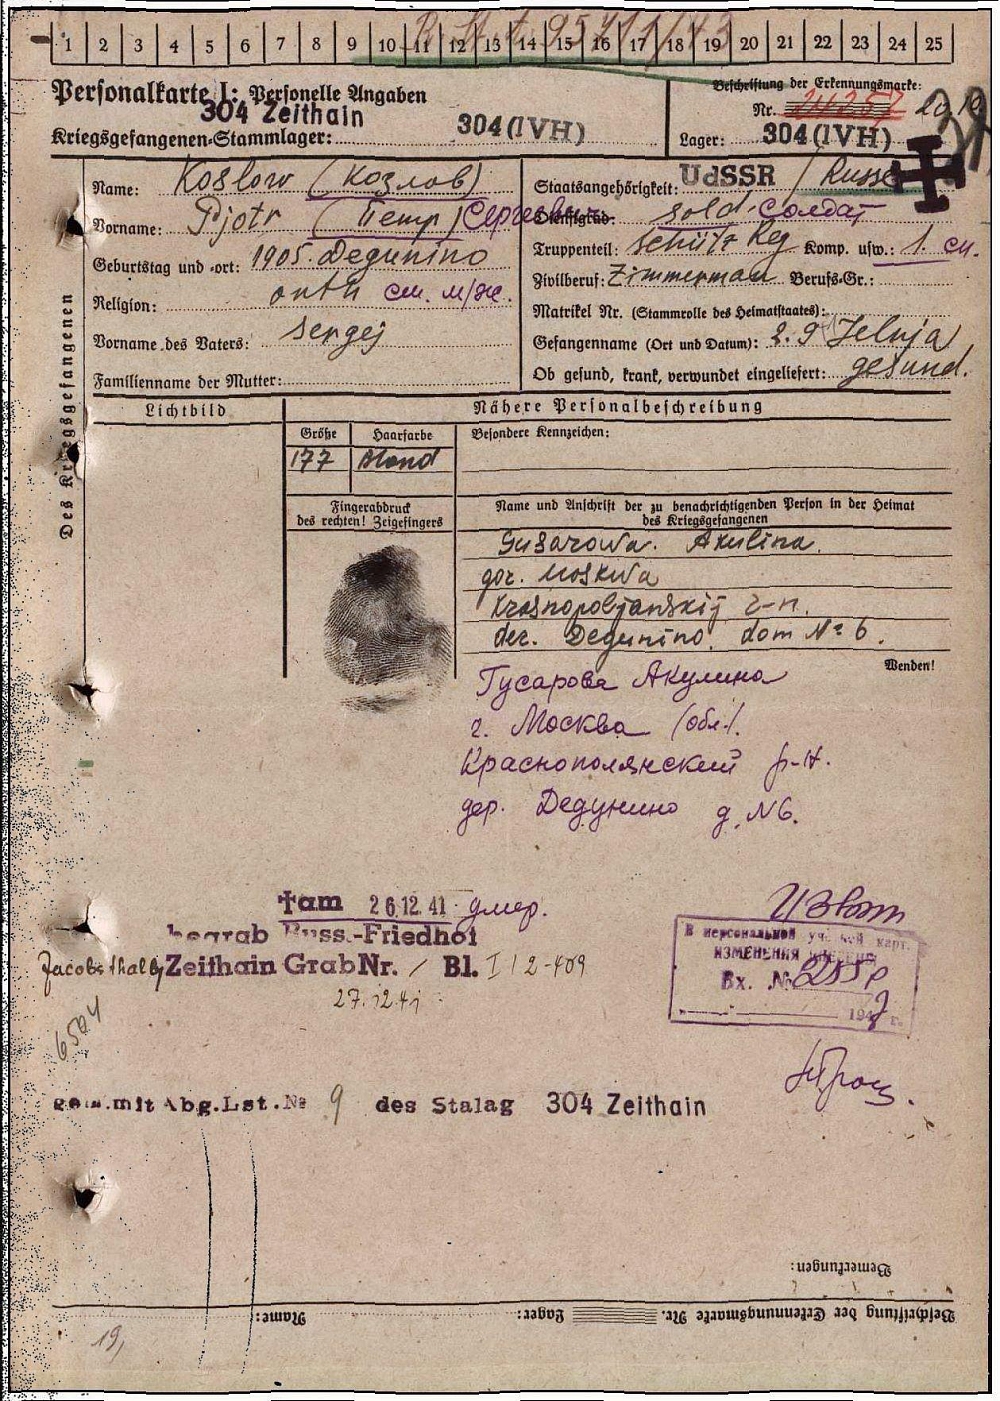 R.St.t. 95711/43
1 2 3 4 5 6 7 8 9 10 11 12 13 14 15 16 17 18 19 20 21 22 23 24 25
Personalkarte I: Personelle Angaben
304 Zeithain
Kriegsgefangenen-Stammlager: 304 (IVH)
Beschriftung der Erkennungsmarke:
Nr.
Lager: 304 (IVH)
Des Kriegsgefangenen
Name: Koslow (Козлов)
Vorname: Pjotr (Петр) Сергеевич
Geburtstag und -ort: 1905. Degunino
Religion: orth см. м/ж.
Vorname des Vaters: Sergej
Familienname der Mutter:
Staatsangehörigkeit: UdSSR / Russe
Dienstgrad: Sold. Солдат
Truppenteil: Schütz Reg Komp. usw.: 1. см.
Zivilberuf: Zimmerman Berufs-Gr.:
Matrikel Nr. (Stammrolle des Heimatstaates):
Gefangenname (Ort und Datum): 2.9 Jelnja
Ob gesund, krank, verwundet eingeliefert: gesund.
Lichtbild
Nähere Personalbeschreibung
Größe Haarfarbe Besondere Kennzeichen:
177 blond
Fingerabdruck
des rechten! Zeigefingers
Name und Anschrift der zu benachrichtigenden Person in der Heimat
des Kriegsgefangenen
Gusarowa. Akulina.
gor. Moskwa
Krasnopoljanskij r-n.
der. Degunino, dom № 6.
Wenden!
Гусарова Акулина
г. Москва (обл.).
Краснополянский р-н.
дер. Дегунино д. N6.
†am 26.12.41 умер.
begrab Russ.-Friedhof
Jacobsthal b/ Zeithain Grab Nr. / Bl. I 12-409
27.12.41
6504
Извещ
В персональной учетной карт.
ИЗМЕНЕНИЯ ВНЕСЕНЫ
Вх. №
194 г.
gem. mit Abg. Lst. № 9 des Stalag 304 Zeithain
Bemerkungen:
Beschriftung der Erkennungsmarke Nr. Lager: Name:
19,